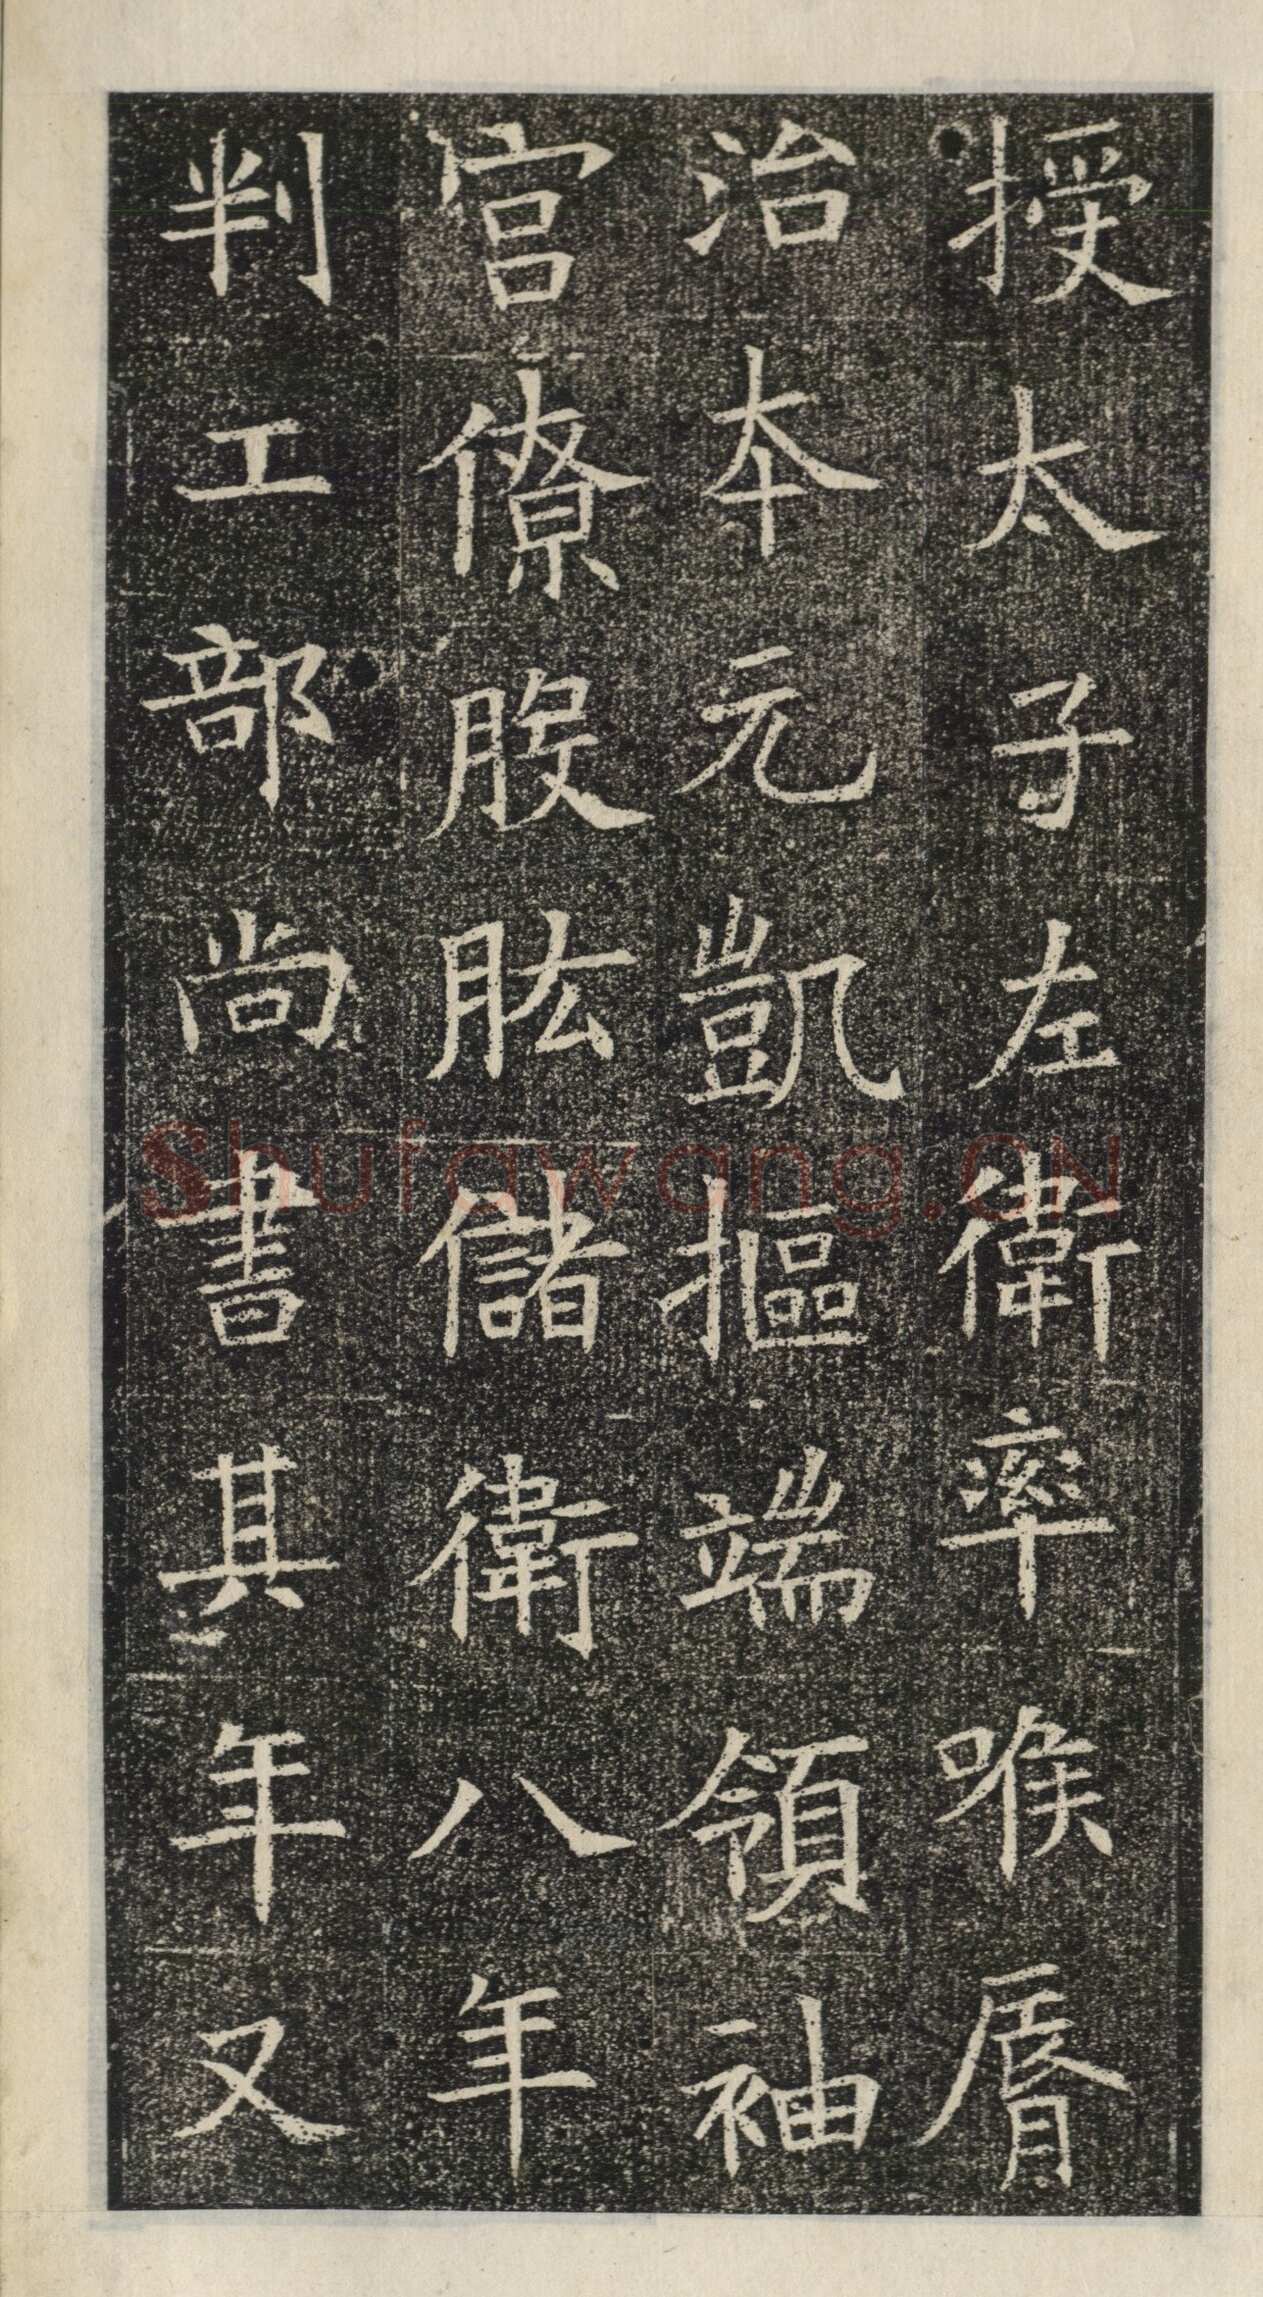 授太子左衛率喉脣
治本元凱摳端領袖
官僚股肱儲衛八年
判工部尚書其年又
Shufawang.CN